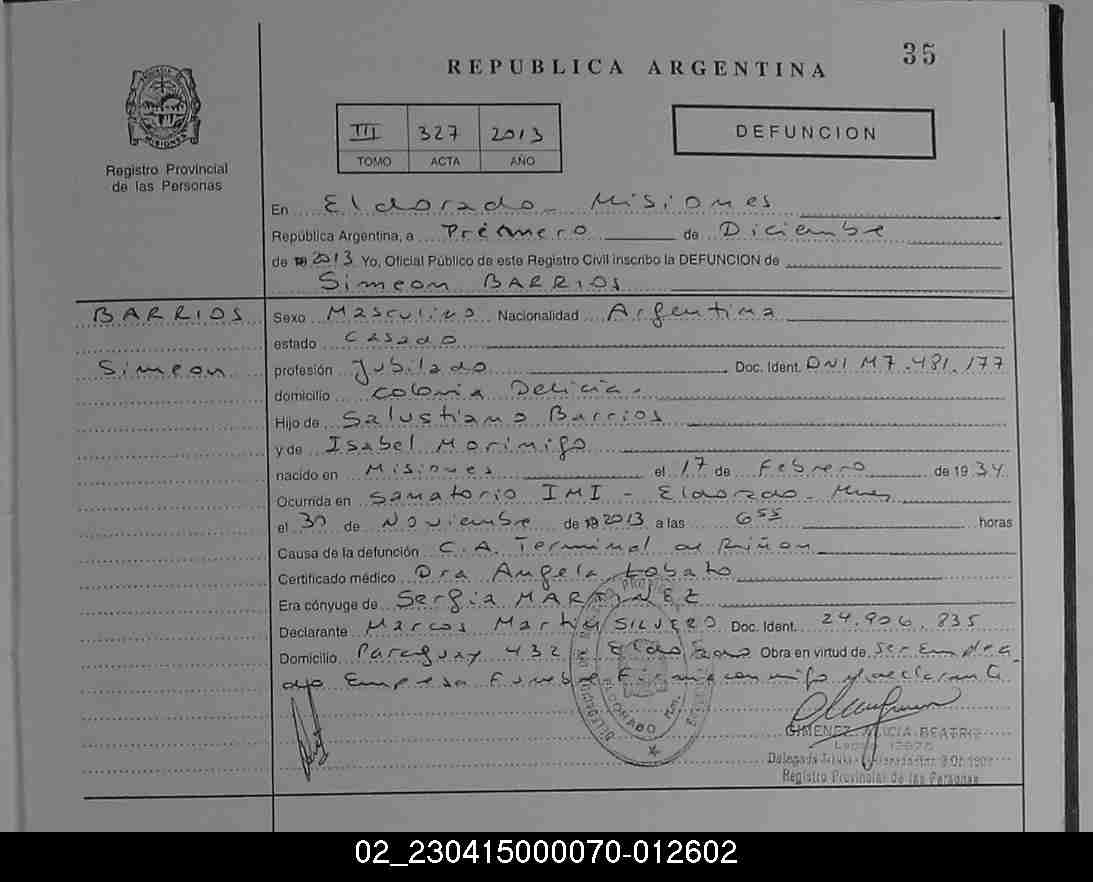 35
REPUBLICA ARGENTINA
MISIONES
Registro Provincial
de las Personas
III 327 2013
TOMO ACTA AÑO
DEFUNCION
En Eldorado - Misiones
República Argentina, a Primero de Diciembre
de 19 2013 Yo, Oficial Público de este Registro Civil inscribo la DEFUNCION de
Simeon BARRIOS
BARRIOS
Simeon
Sexo Masculino Nacionalidad Argentina
estado Casado
profesión Jubilado Doc. Ident. DNI M7.481.177
domicilio Colonia Delicia.
Hijo de Salustiano Barrios
y de Isabel Morinigo
nacido en Misiones el 17 de Febrero de 1934
Ocurrida en Sanatorio IMI - Eldorado - Mnes
el 30 de Noviembre de 19 2013 a las 6 55 horas
Causa de la defunción C.A. Terminal de Riñon
Certificado médico Dra Angela Lobato
Era cónyuge de Sergia MARTINEZ
Declarante Marcos Martin SILVERO Doc. Ident. 24.906.835
Domicilio Paraguay 432 Eldorado Obra en virtud de Ser Emplea
do Empresa Funebre - Firma conmigo declarante
GIMENEZ ALICIA BEATRIZ
Registro Provincial de las Personas
02_230415000070-012602